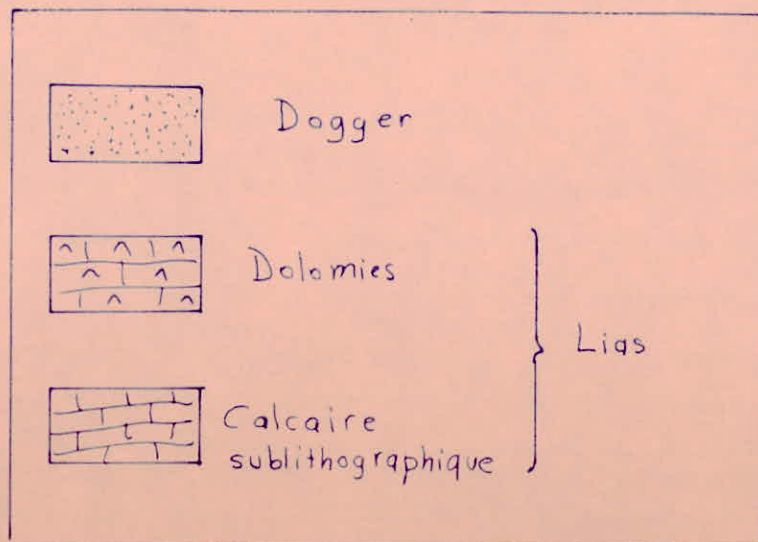 Dogger
Dolomies
Lias
Calcaire
sublithographique